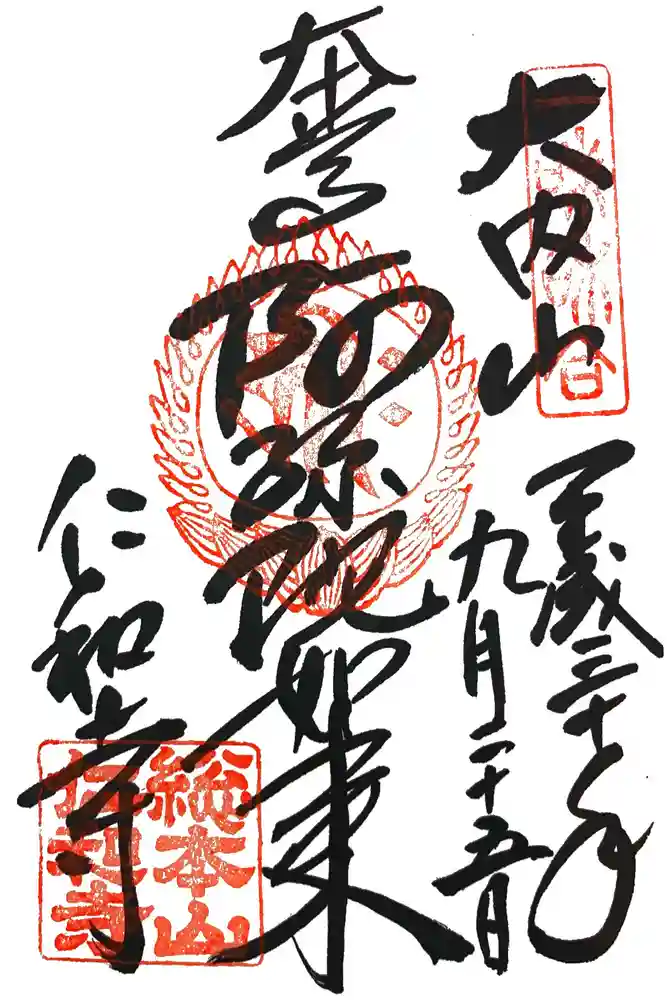 大内山
平成三十年
九月二十五日
阿弥陀如来
仁和寺
総本山
仁和寺